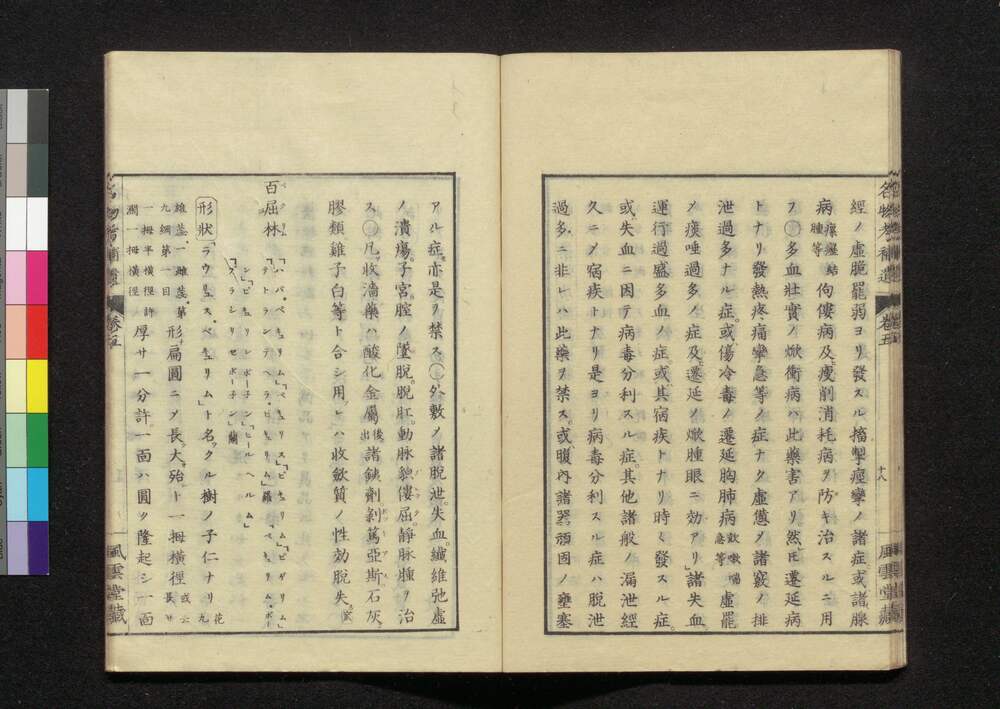 名物考補遺 卷五 十八 風雲堂藏
經ノ虛脆罷弱ヨリ發スル搐掣痙攣ノ諸症或諸腺
病瘰癧結腫等佝僂病及瘦削消耗病ヲ防キ治スルニ用
フ○多血壯實ノ焮衝病ハ此藥害アリ然𪜈遷延病
トナリ發熱疼痛攣急等ノ症ナク虛憊ノ諸竅ノ排
泄過多ナル症或傷冷毒ノ遷延胸肺病欬嗽喘急等虛罷
ノ痰唾過多ノ症及遷延ノ焮腫眼ニ効アリ諸失血
運行過盛多血ノ症或其宿疾トナリ時々發スル症
或失血ニ因テ病毒分利スル症其他諸般ノ漏泄經
久ニメ宿疾トナリ是ヨリ病毒分利スル症ハ脫泄
過多ニ非レハ此藥ヲ禁ス或腹內諸器頑固ノ壅塞
アル症亦是ヲ禁ス○外敷ノ諸脫泄失血纖維弛虛
ノ潰瘍子宮腔ノ墜脫脫肛動脉貌僂屈靜脉腫ヲ治
ス○凡收濇藥ハ酸化金屬後出諸鐵劑剝篤亞斯石灰
膠類雞子白等ト合シ用レハ收斂質ノ性効脫失ス
百屈林
形狀「ラウリュス・ペキュリム」ト名クル樹ノ子仁ナリ花九
雄蕊一雌蕊第九綱第一目形扁圓ニメ長大殆ト一拇橫徑或云長サ
一拇半橫徑許濶一拇橫徑厚サ一分許一面ハ圓ク隆起シ一面
卷五 風雲堂藏